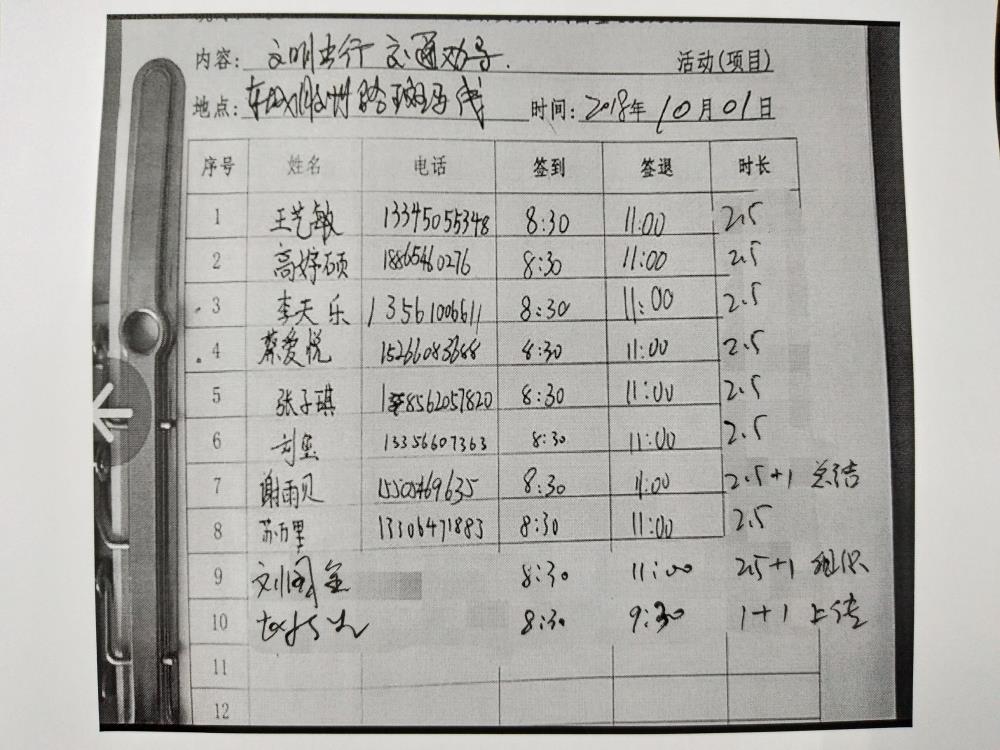 内容: 文明出行 交通劝导. 活动(项目)
地点: 路斑马线 时间: 2018年10月01日
序号 姓名 电话 签到 签退 时长
1 王艺敏 13345055348 8:30 11:00 2.5
2 高婷硕 18865460276 8:30 11:00 2.5
3 李天乐 13561006611 8:30 11:00 2.5
4 蔡爱悦 15266083688 8:30 11:00 2.5
5 张子琪 18562057820 8:30 11:00 2.5
6 13356607363 8:30 11:00 2.5
7 谢雨贝 15505469635 8:30 11:00 2.5+1 总结
8 13306471883 8:30 11:00 2.5
9 8:30 11:00 2.5+1 组织
10 8:30 9:30 1+1 上传
11
12